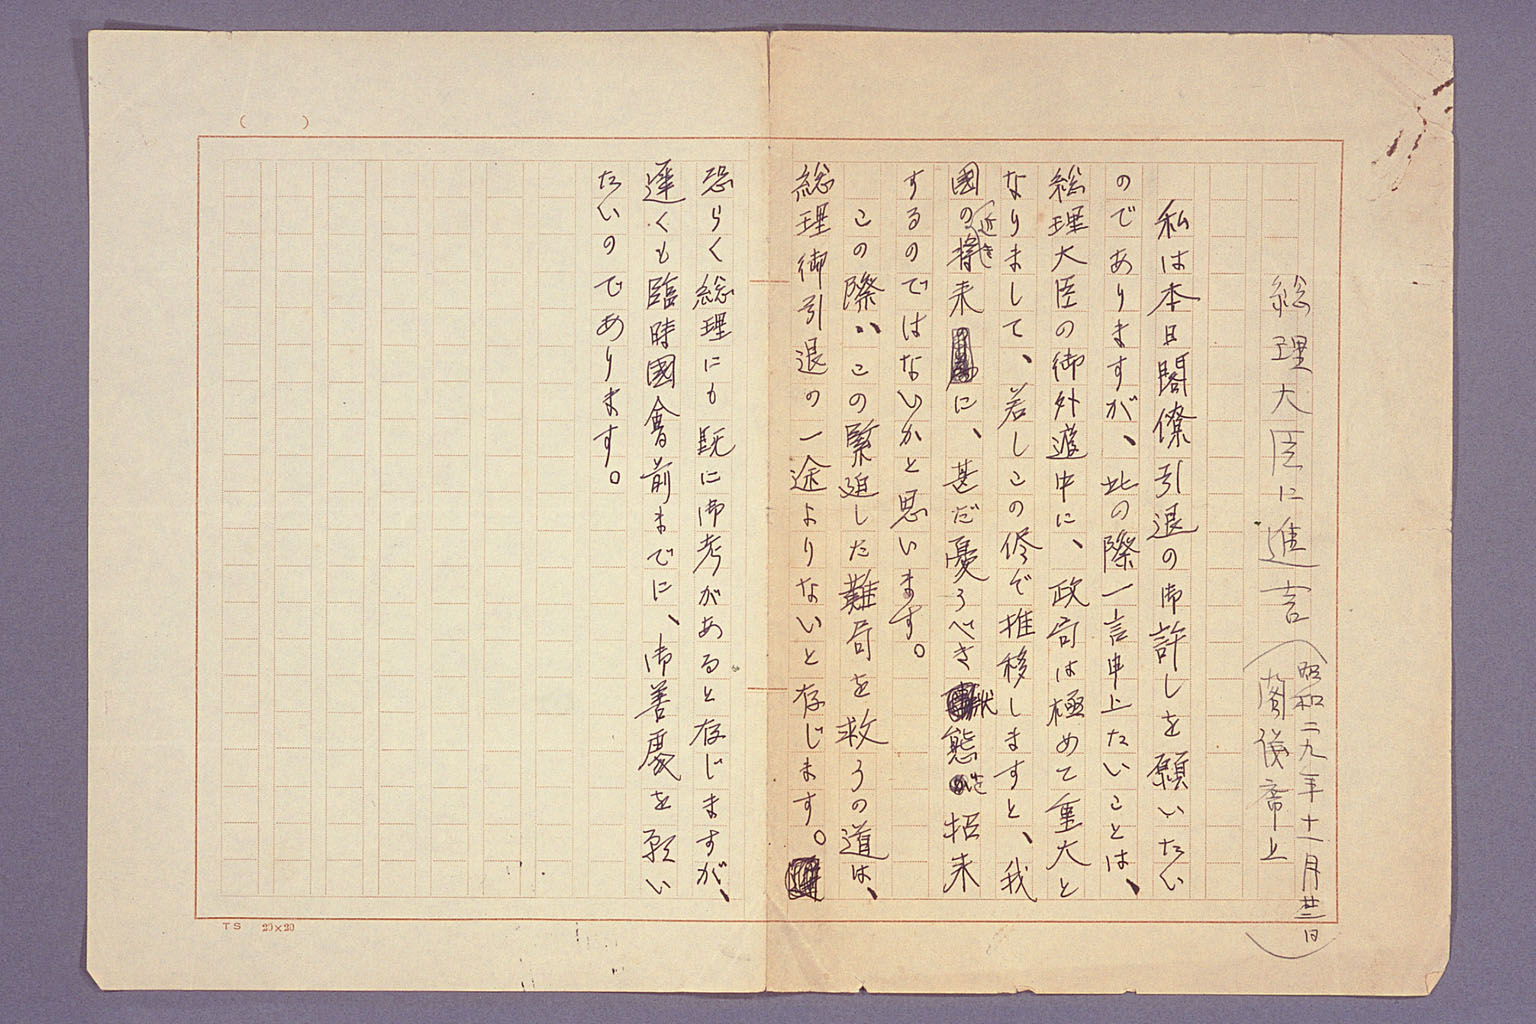 総理大臣に進言
(昭和二九年十一月廿二日
閣議席上)
私は本日閣僚引退の御許しを願いたい
のでありますが、此の際一言申上たいことは、
総理大臣の御外遊中に、政局は極めて重大と
なりまして、若しこの侭で推移しますと、我
國の近き将来に、甚だ憂うべき状態を招来
するのではないかと思います。
この際、この緊迫した難局を救うの道は、
総理御引退の一途よりないと存じます。
恐らく総理にも既に御考があると存じますが、
遅くも臨時國會前までに、御善慮を願い
たいのであります。
( )
TS 20×20